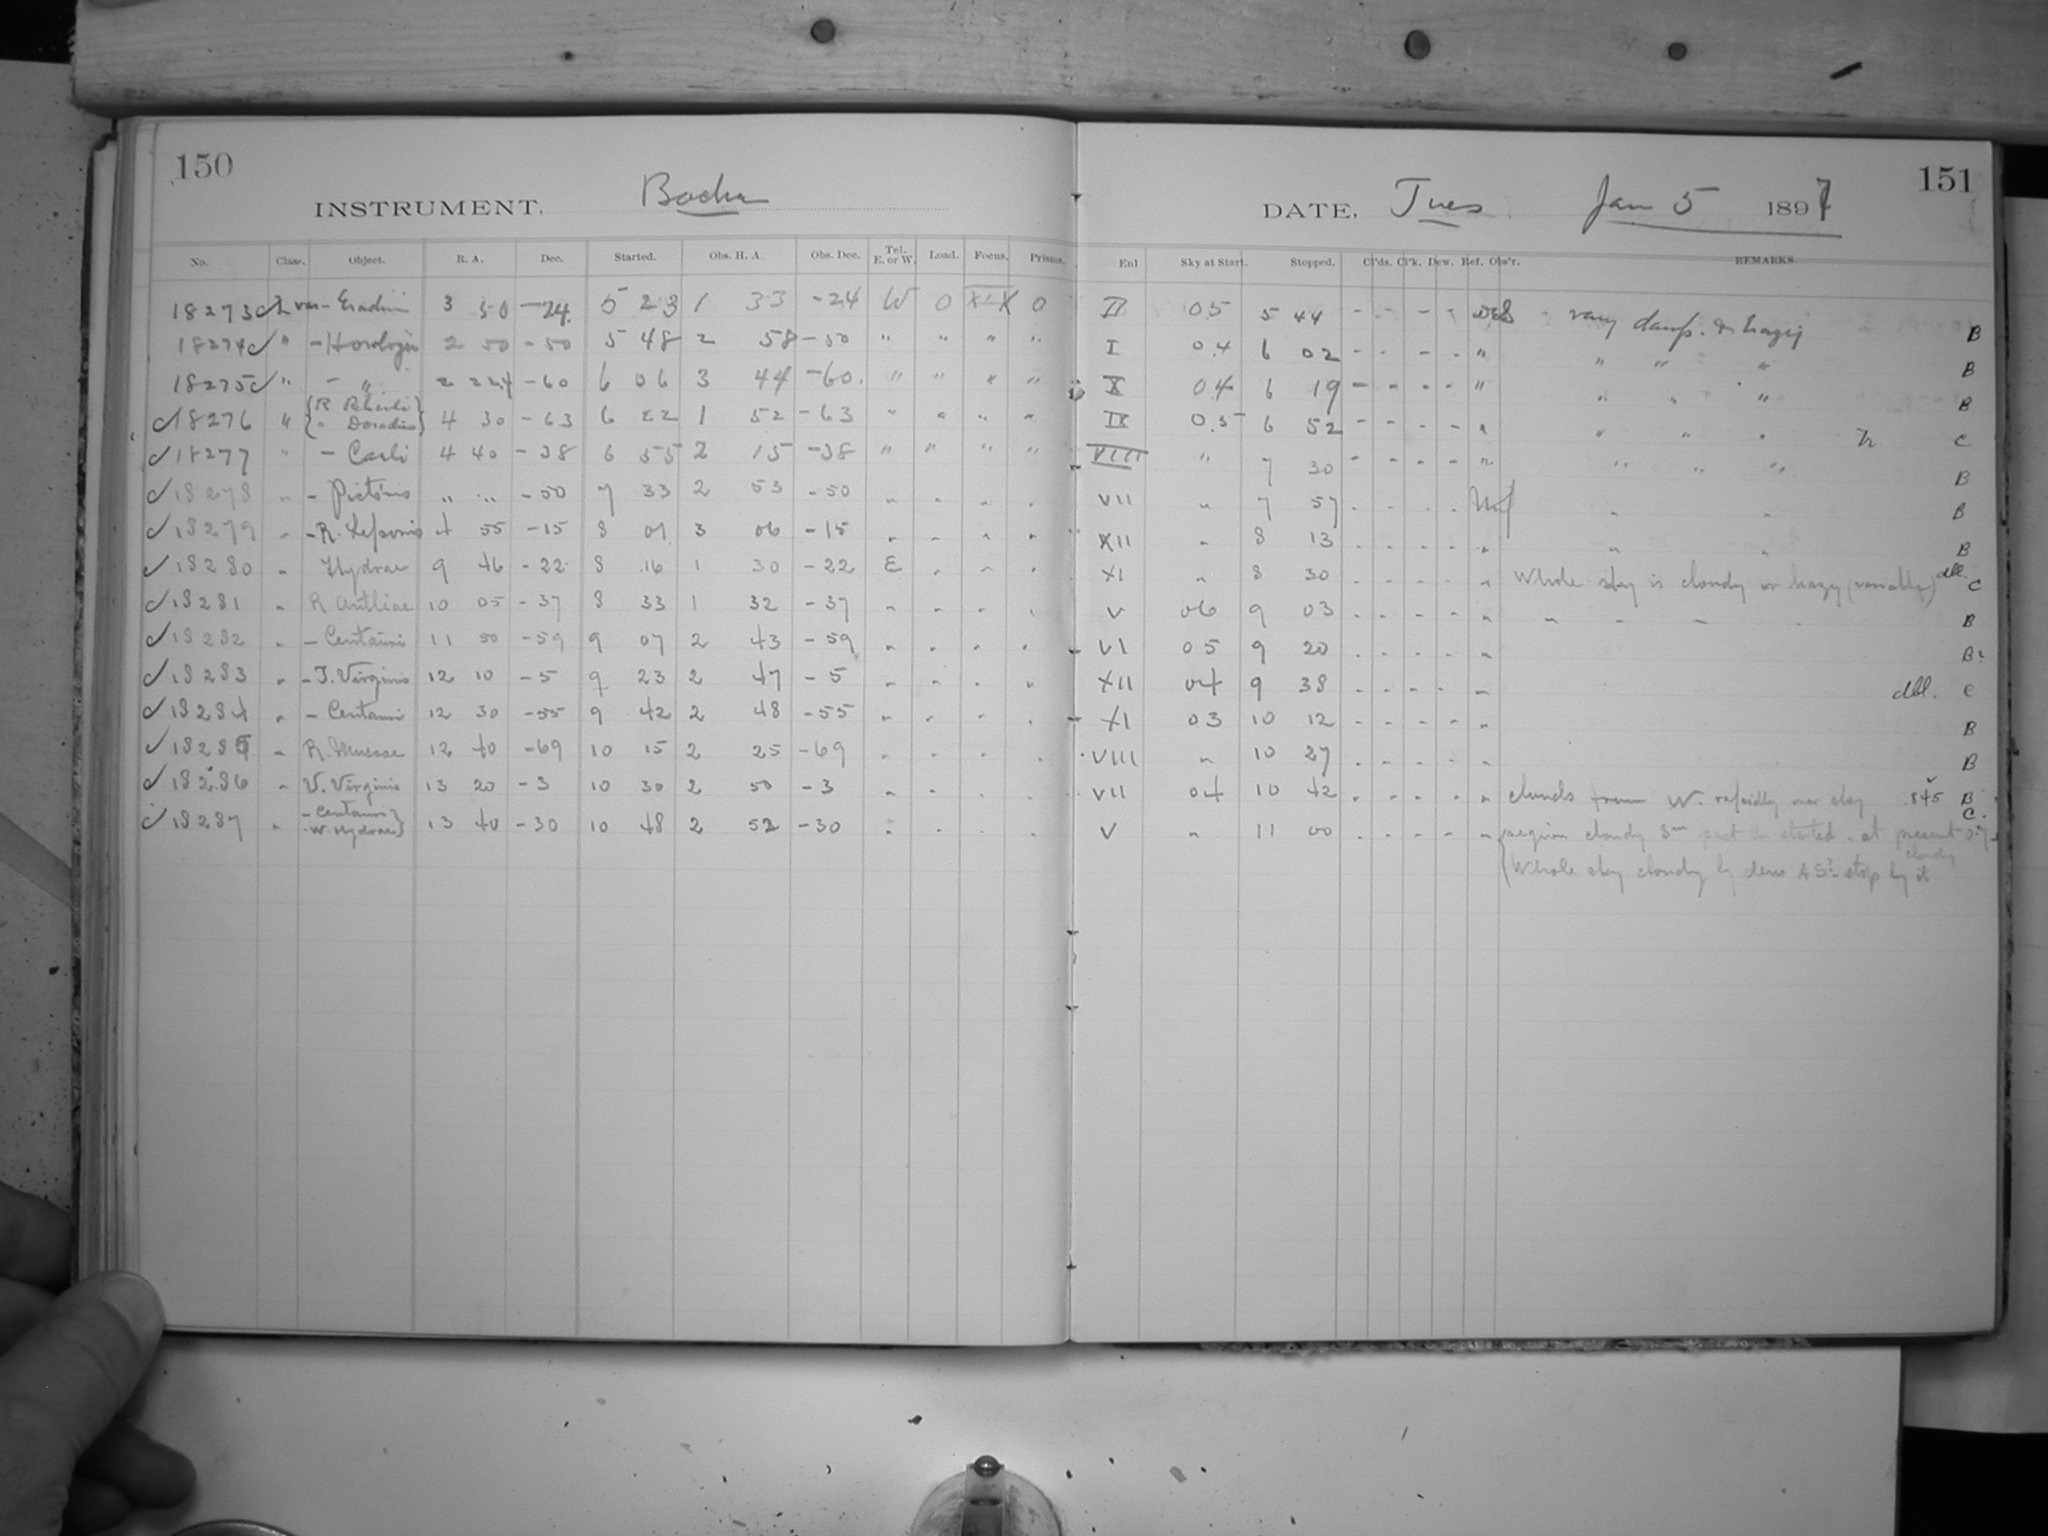 150
INSTRUMENT, Bache
No. Class. Object. R. A. Dec. Started. Obs. H. A. Obs. Dec. Tel. E. or W. Load. Focus. Prisms.
18273 L var - Eridani 3 50 -24 5 23 1 33 -24 W 0 XIX 0
18274 " - Horologii 2 50 -50 5 48 2 58 -50 " " " "
18275 " - " 2 22.4 -60 6 06 3 44 -60 " " " "
18276 " {R Reticuli " Doradus} 4 30 -63 6 22 1 52 -63 " " " "
18277 " - Caeli 4 40 -38 6 55 2 15 -38 " " " "
18278 " - Pictoris " " -50 7 33 2 53 -50 " " " "
18279 " - R. Leporis 4 55 -15 8 01 3 06 -15 " " " "
18280 " Hydrae 9 46 -22 8 16 1 30 -22 E " " "
18281 " R Antliae 10 05 -37 8 33 1 32 -37 " " " "
18282 " - Centauri 11 50 -59 9 07 2 43 -59 " " " "
18283 " - T. Virginis 12 10 -5 9 23 2 47 -5 " " " "
18284 " - Centauri 12 30 -55 9 42 2 48 -55 " " " "
18285 " R. Muscae 12 40 -69 10 15 2 25 -69 " " " "
18286 " V. Virginis 13 20 -3 10 30 2 50 -3 " " " "
18287 " {- Centauri - W. Hydrae} 13 40 -30 10 48 2 52 -30 " " " "
151
DATE, Tues Jan 5 1897
Enl Sky at Start. Stopped. Cl'ds. Cl'k. Dew. Ref. Obs'r. REMARKS.
II 0.5 5 44 - - - - very damp. & hazy B
I 0.4 6 02 - - - - " " " " B
X 0.4 6 19 - - - - " " " " B
IX 0.5 6 52 - - - - " " " " C
VIII " 7 30 - - - - " " " " B
VII " 7 57 - - - - " " B
XII " 8 13 - - - - " " " B
XI " 8 30 - - - - " Whole sky is cloudy or hazy (variably) dbl. C
V 06 9 03 - - - - " " " " B
VI 05 9 20 - - - - " B?
XII 04 9 38 - - - - " dbl. C
XI 03 10 12 - - - - " B
VIII " 10 27 - - - - " B
VII 04 10 42 - - - - " clouds from W. rapidly over sky .845 B
V " 11 00 - - - - " region cloudy 3m started - at present C.
Whole sky cloudy by stop by it cloudy